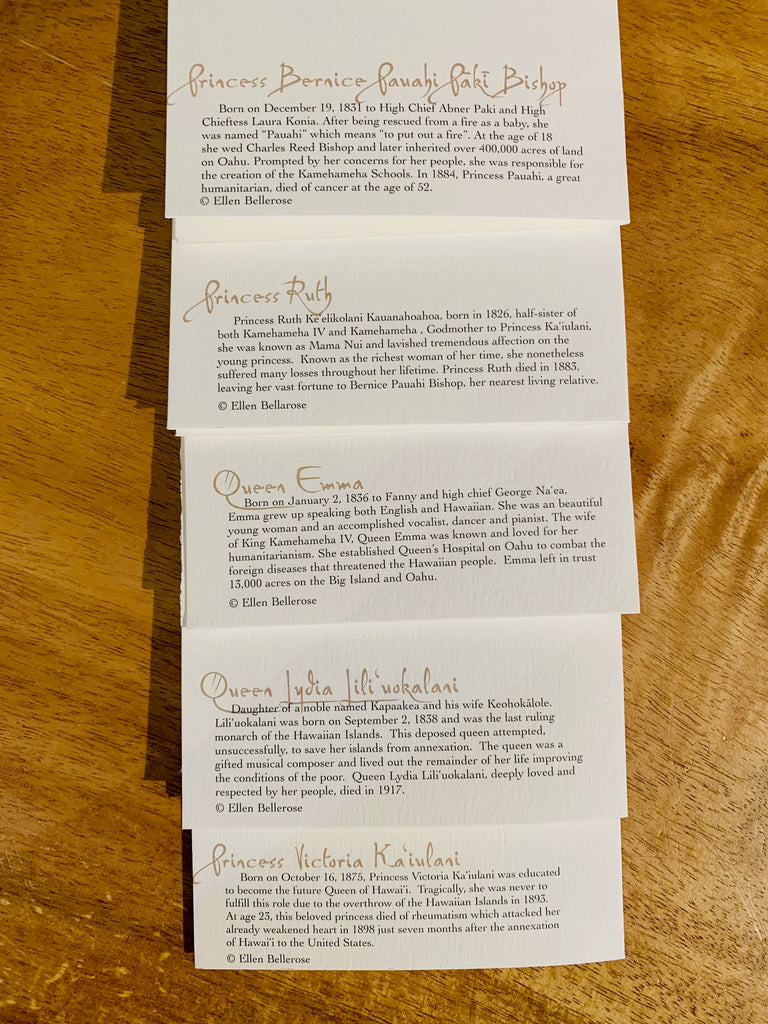 Princess Bernice Pauahi Pākī Bishop
Born on December 19, 1831 to High Chief Abner Paki and High
Chieftess Laura Konia. After being rescued from a fire as a baby, she
was named "Pauahi" which means "to put out a fire". At the age of 18
she wed Charles Reed Bishop and later inherited over 400,000 acres of land
on Oahu. Prompted by her concerns for her people, she was responsible for
the creation of the Kamehameha Schools. In 1884, Princess Pauahi, a great
humanitarian, died of cancer at the age of 52.
© Ellen Bellerose
Princess Ruth
Princess Ruth Ke'elikolani Kauanahoahoa, born in 1826, half-sister of
both Kamehameha IV and Kamehameha , Godmother to Princess Ka'iulani,
she was known as Mama Nui and lavished tremendous affection on the
young princess. Known as the richest woman of her time, she nonetheless
suffered many losses throughout her lifetime. Princess Ruth died in 1883,
leaving her vast fortune to Bernice Pauahi Bishop, her nearest living relative.
© Ellen Bellarose
Queen Emma
Born on January 2, 1836 to Fanny and high chief George Na'ea,
Emma grew up speaking both English and Hawaiian. She was an beautiful
young woman and an accomplished vocalist, dancer and pianist. The wife
of King Kamehameha IV, Queen Emma was known and loved for her
humanitarianism. She established Queen's Hospital on Oahu to combat the
foreign diseases that threatened the Hawaiian people. Emma left in trust
13,000 acres on the Big Island and Oahu.
© Ellen Bellerose
Queen Lydia Lili'uokalani
Daughter of a noble named Kapaakea and his wife Keohokālole.
Lili'uokalani was born on September 2, 1838 and was the last ruling
monarch of the Hawaiian Islands. This deposed queen attempted,
unsuccessfully, to save her islands from annexation. The queen was a
gifted musical composer and lived out the remainder of her life improving
the conditions of the poor. Queen Lydia Lili'uokalani, deeply loved and
respected by her people, died in 1917.
© Ellen Bellerose
Princess Victoria Ka'iulani
Born on October 16, 1875, Princess Victoria Ka'iulani was educated
to become the future Queen of Hawai'i. Tragically, she was never to
fulfill this role due to the overthrow of the Hawaiian Islands in 1893.
At age 23, this beloved princess died of rheumatism which attacked her
already weakened heart in 1898 just seven months after the annexation
of Hawai'i to the United States.
© Ellen Bellerose